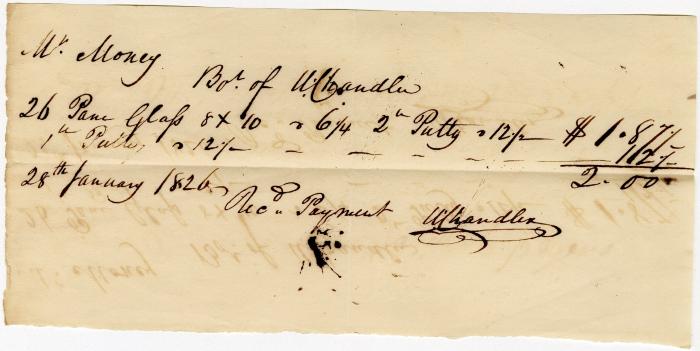 Mr. Money
Bot. of W Chandler
26 Pane Glass 8 x 10 a 6/4 2 lb Putty a 12/2 $ 1.87½
1 lb Putty a 12/2 - - - - - - 12½
28th January 1826 2.00
Recd Payment W Chandler